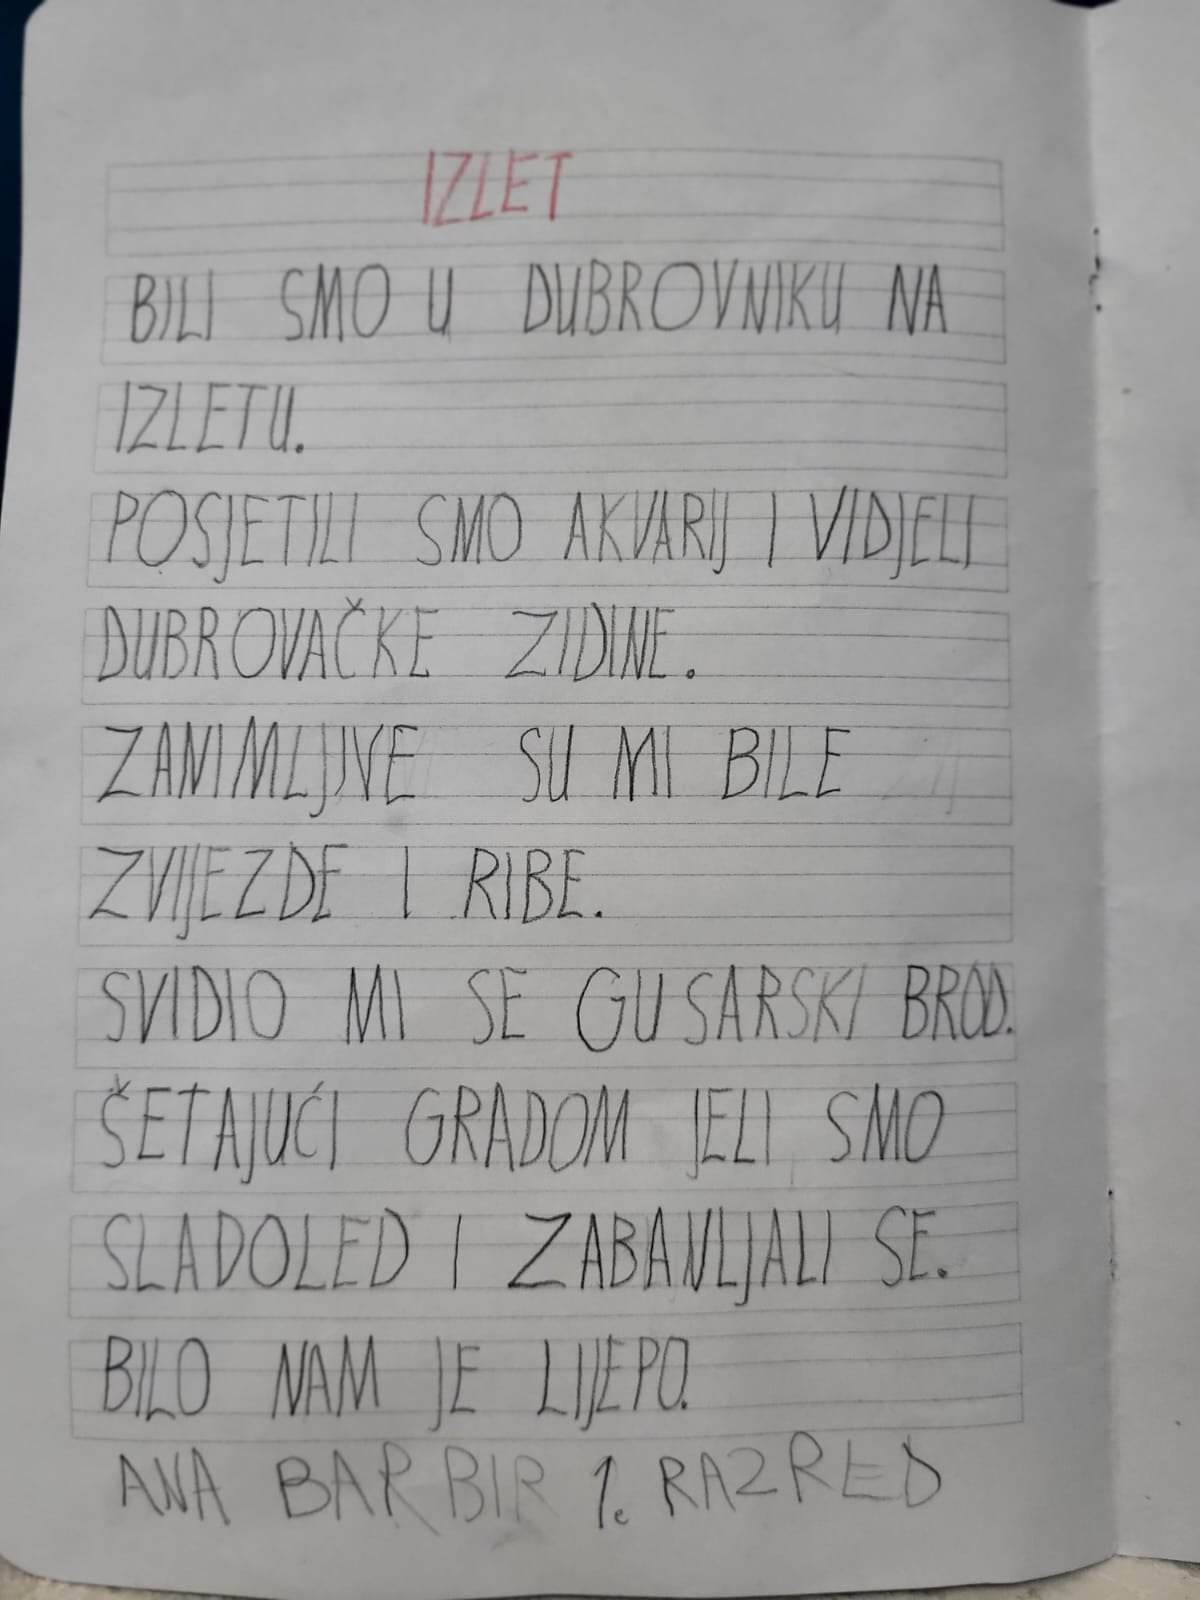 IZLET
BILI SMO U DUBROVNIKU NA
IZLETU.
POSJETILI SMO AKVARIJ I VIDJELI
DUBROVAČKE ZIDINE.
ZANIMLJIVE SU MI BILE
ZVIJEZDE I RIBE.
SVIDIO MI SE GUSARSKI BROD.
ŠETAJUĆI GRADOM JELI SMO
SLADOLED I ZABAVLJALI SE.
BILO NAM JE LIJEPO.
ANA BARBIR 1. RAZRED